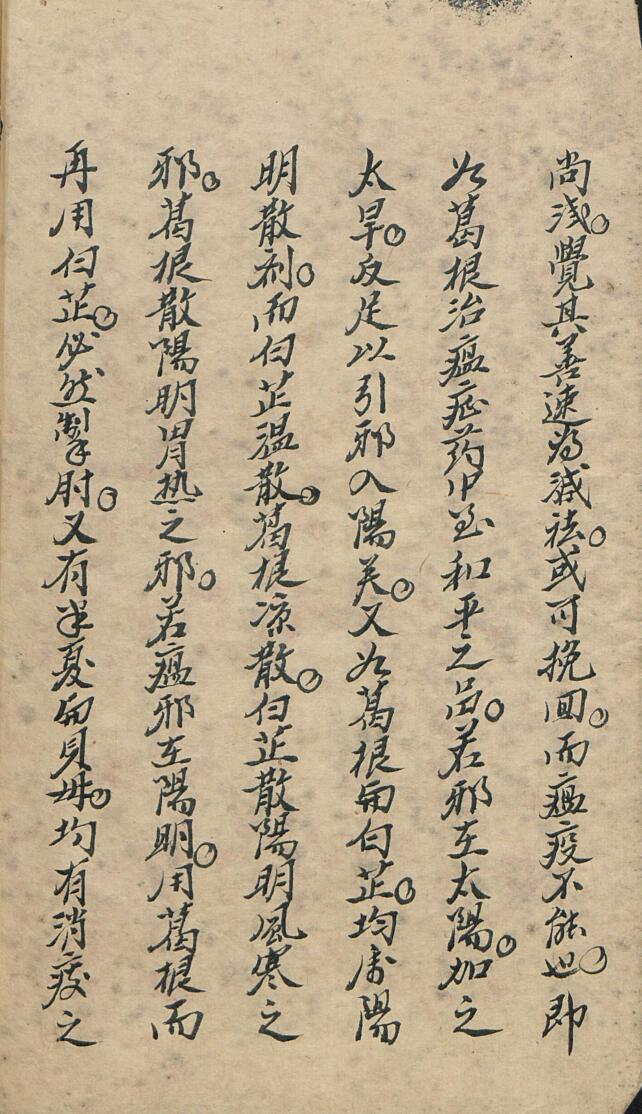 尚浅。覺其善速为减祛。或可挽囬。而瘟疫不能也。即
如葛根治瘟症药中至和平之品。若邪在太陽。加之
太早。反足以引邪入陽关。又如葛根与白芷。均屬陽
明散剂。而白芷温散。葛根凉散。白芷散陽明風寒之
邪。葛根散陽明胃热之邪。若瘟邪在陽明。用葛根而
再用白芷。必然掣肘。又有半夏与贝母。均有消痰之